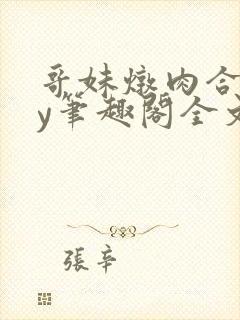 哥妹燉肉合
y筆趣閣全文
張辛